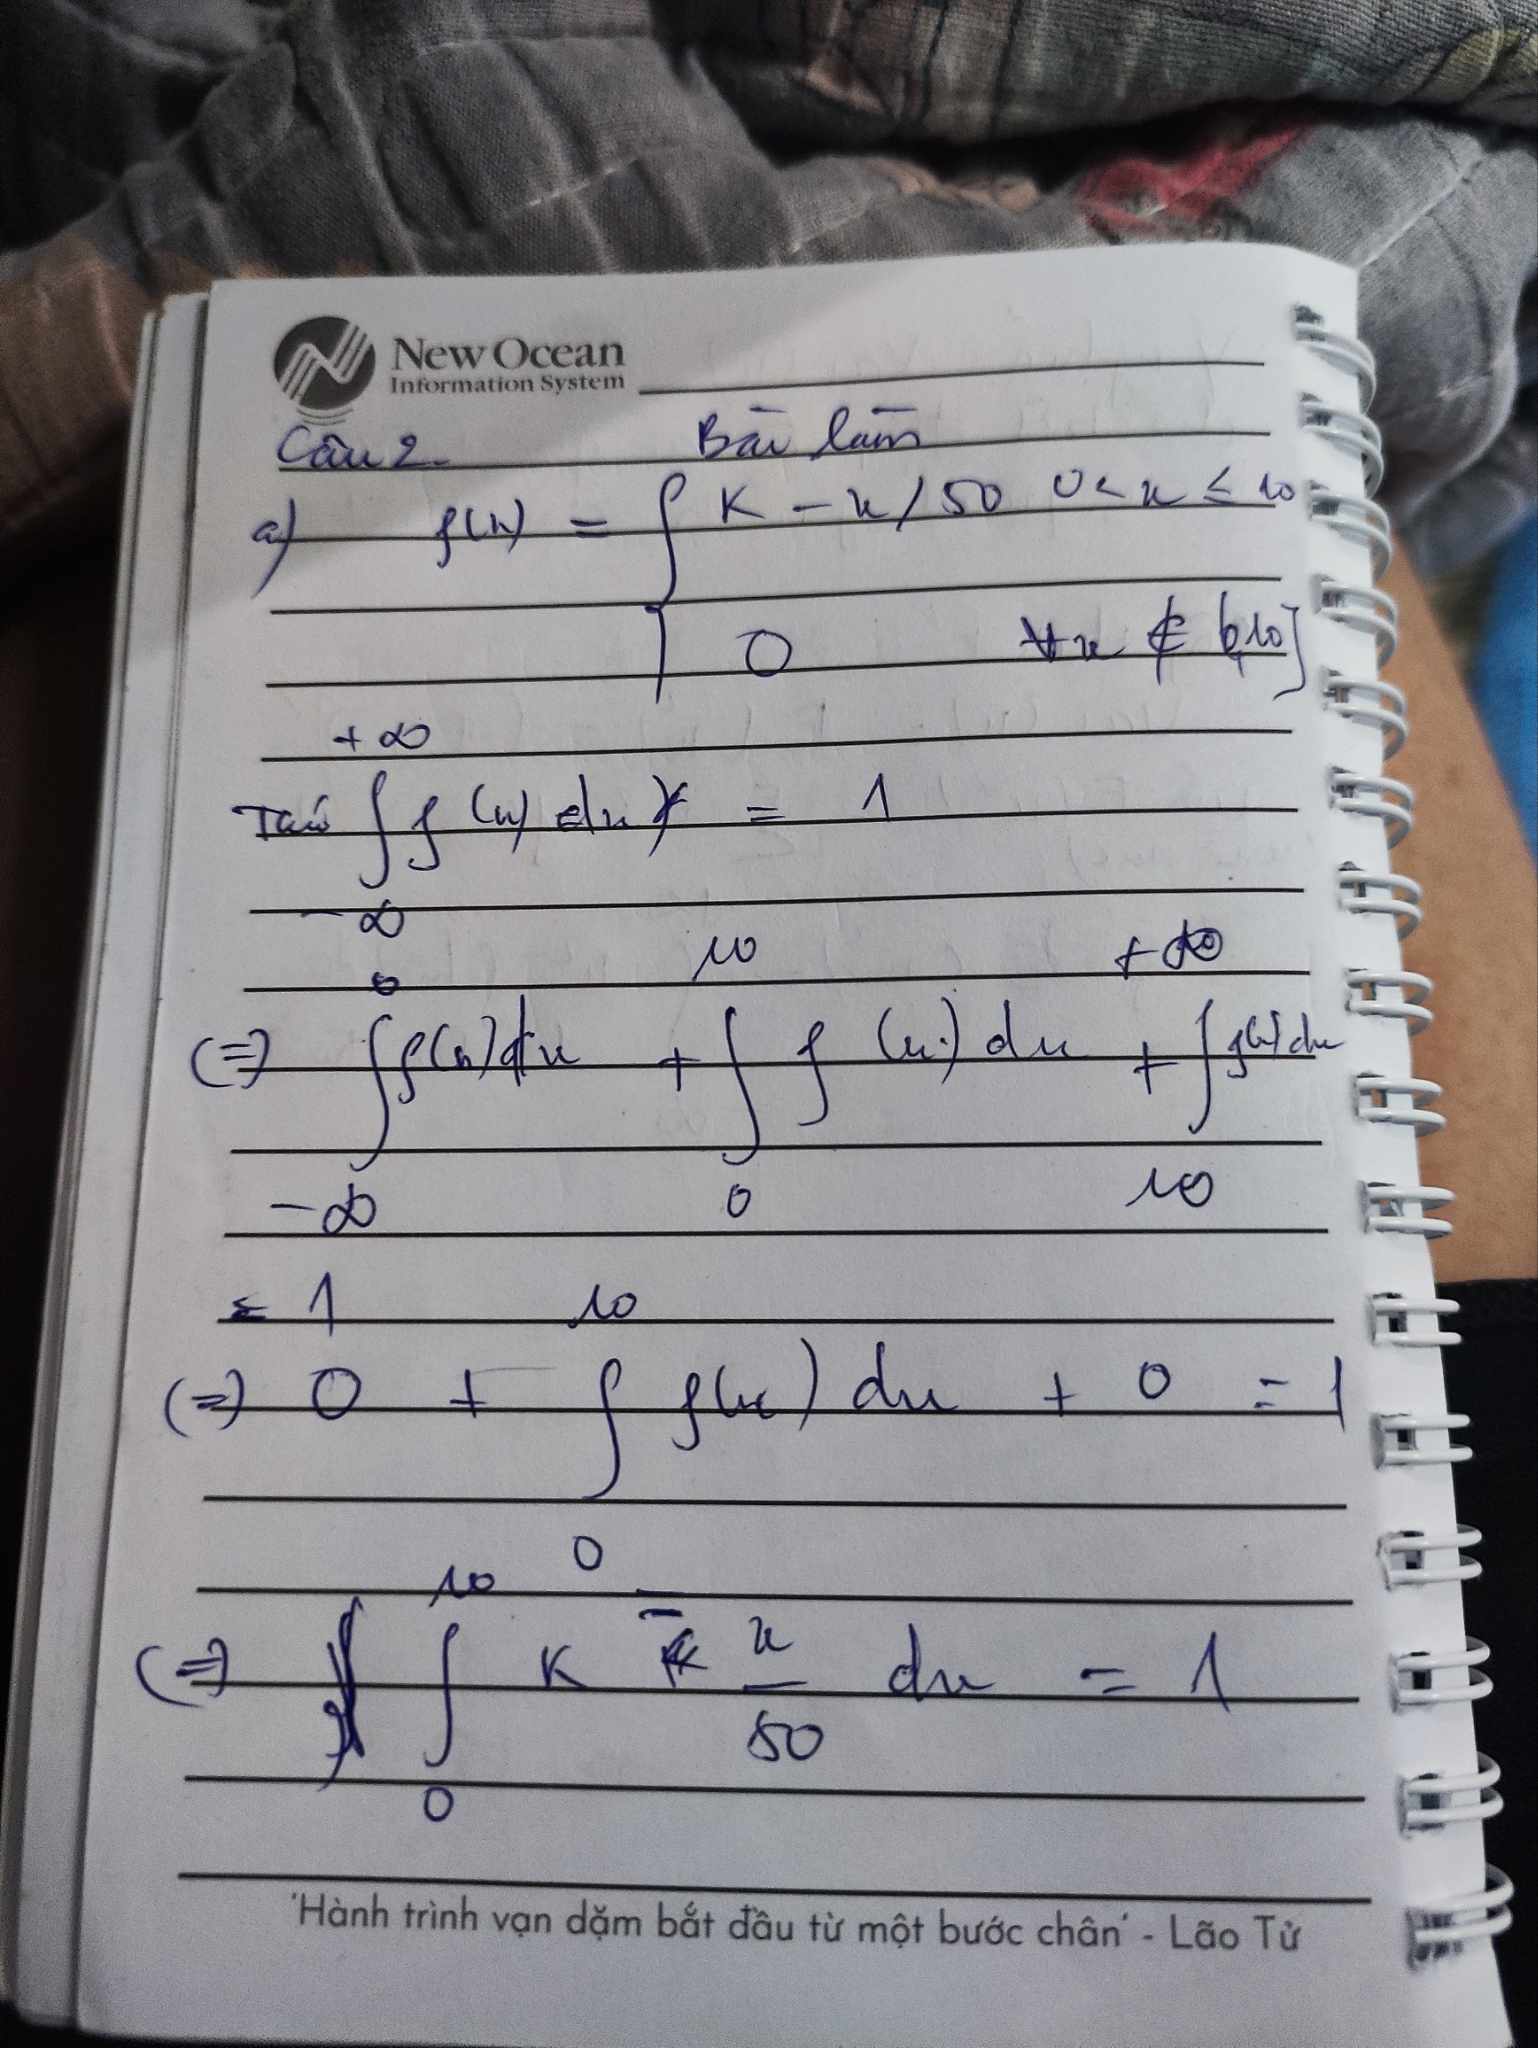 New Ocean
Information System
Câu 2. Bài làm
a) f(x) = { K - x/50 0 < x ≤ 10
0 ∀x ∉ (0,10]
+∞
Ta có ∫ f(x) dx = 1
-∞
0 10 +∞
(=) ∫ f(x) dx + ∫ f(x) dx + ∫ f(x) dx
-∞ 0 10
= 1 10
(=) 0 + ∫ f(x) dx + 0 = 1
0
10
(=) ∫ K - x/50 dx = 1
0
'Hành trình vạn dặm bắt đầu từ một bước chân' - Lão Tử